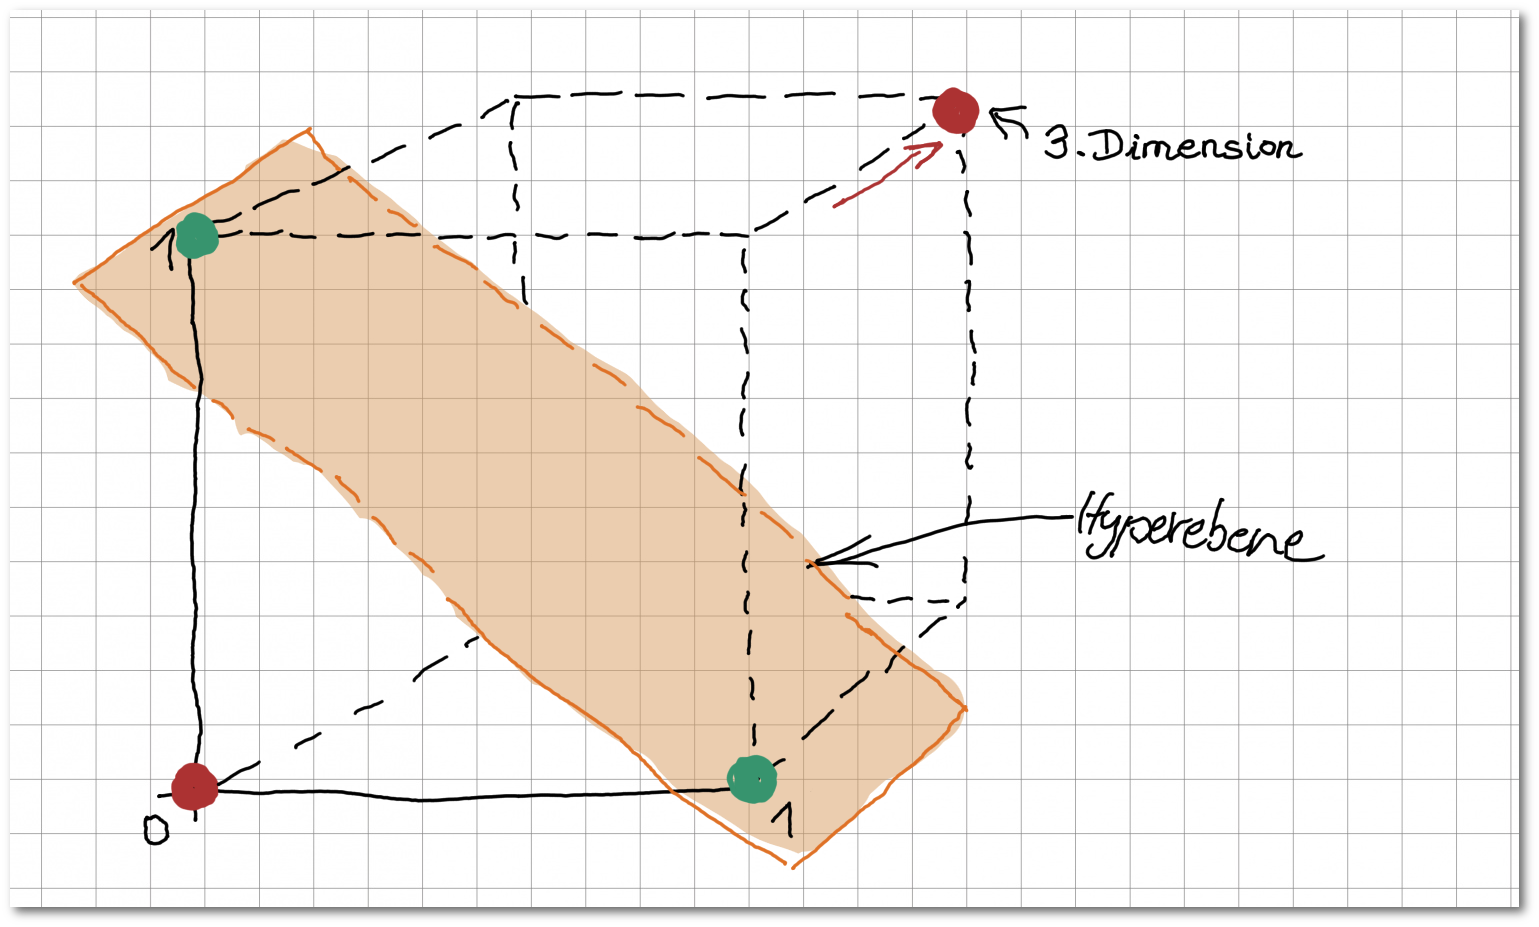 3. Dimension
1
Hyperebene
1
0